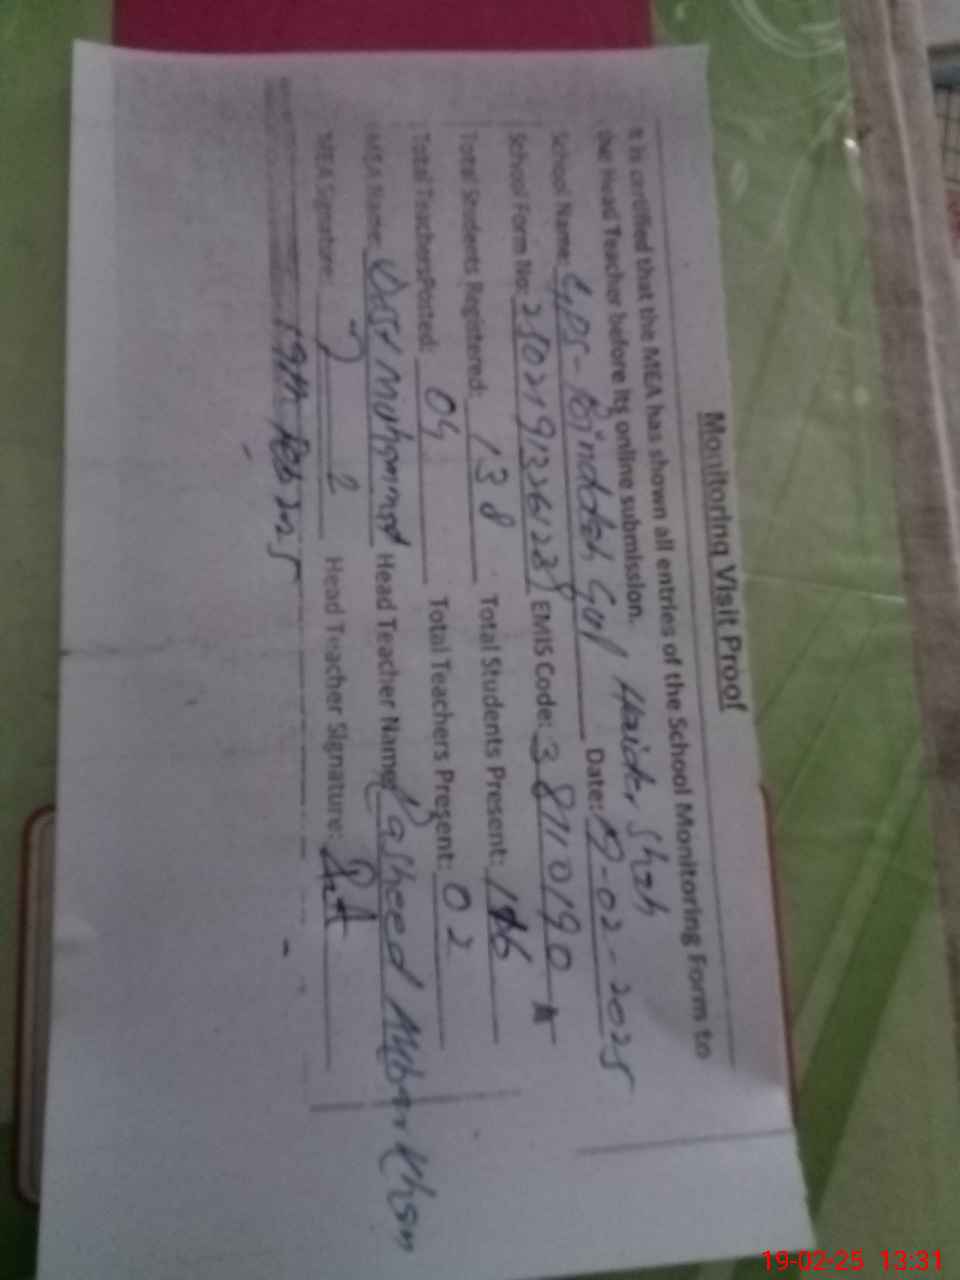 Monitoring Visit Proof
It is certified that the MEA has shown all entries of the School Monitoring Form to
the Head Teacher before its online submission.
School Name: GPS - Haider Shah Date: 19-02-2025
School Form No: EMIS Code: 38110190
Total Students Registered: 138 Total Students Present: 116
Total Teachers Posted: 04 Total Teachers Present: 02
MEA Name: Muhammad Head Teacher Name: Rasheed Khan
MEA Signature: Head Teacher Signature:
19th Feb 2025
19-02-25 13:31